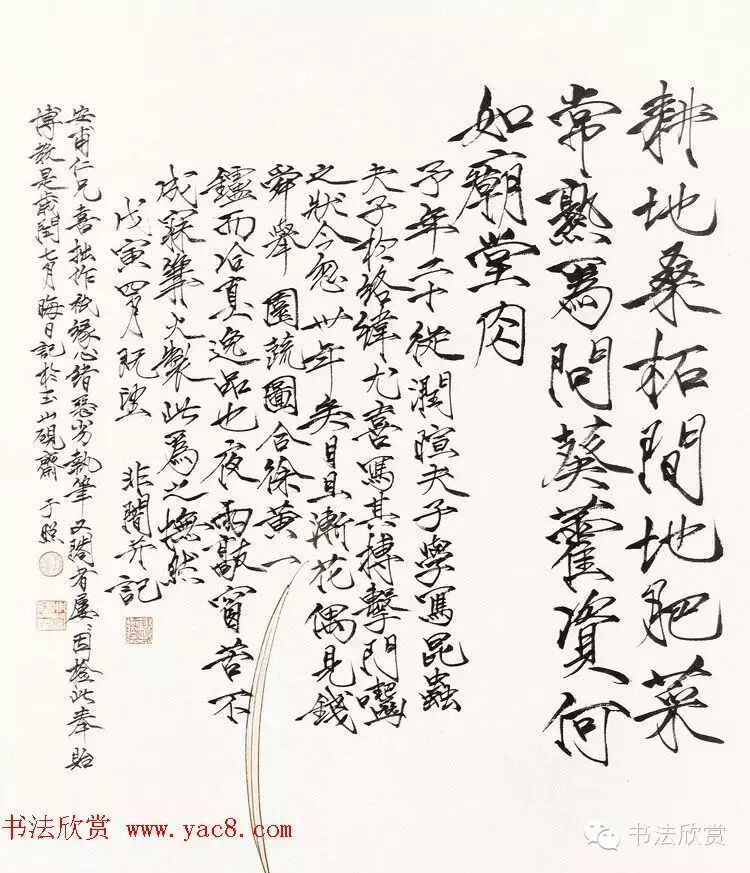 耕地桑柘間地肥菜
常熟為問葵藿資何
如廟堂肉
予年二十從潤暄夫子學寫昆蟲
夫子於絡緯尤喜寫其搏擊鬥嚙
之狀今忽卅年矣目且漸花偶見錢
舜舉園蔬圖合徐黃一
鑪而冶真逸品也夜雨敲窗苦不
成寐篝火製此為之憮然
戊寅四月既望 非闇并記
安甫仁兄喜拙作祇緣心緒惡劣執筆又闇有屢因檢此奉貽
博教是歲閏七月晦日記於玉山硯齋 于照
书法欣赏 www.yac8.com
书法欣赏